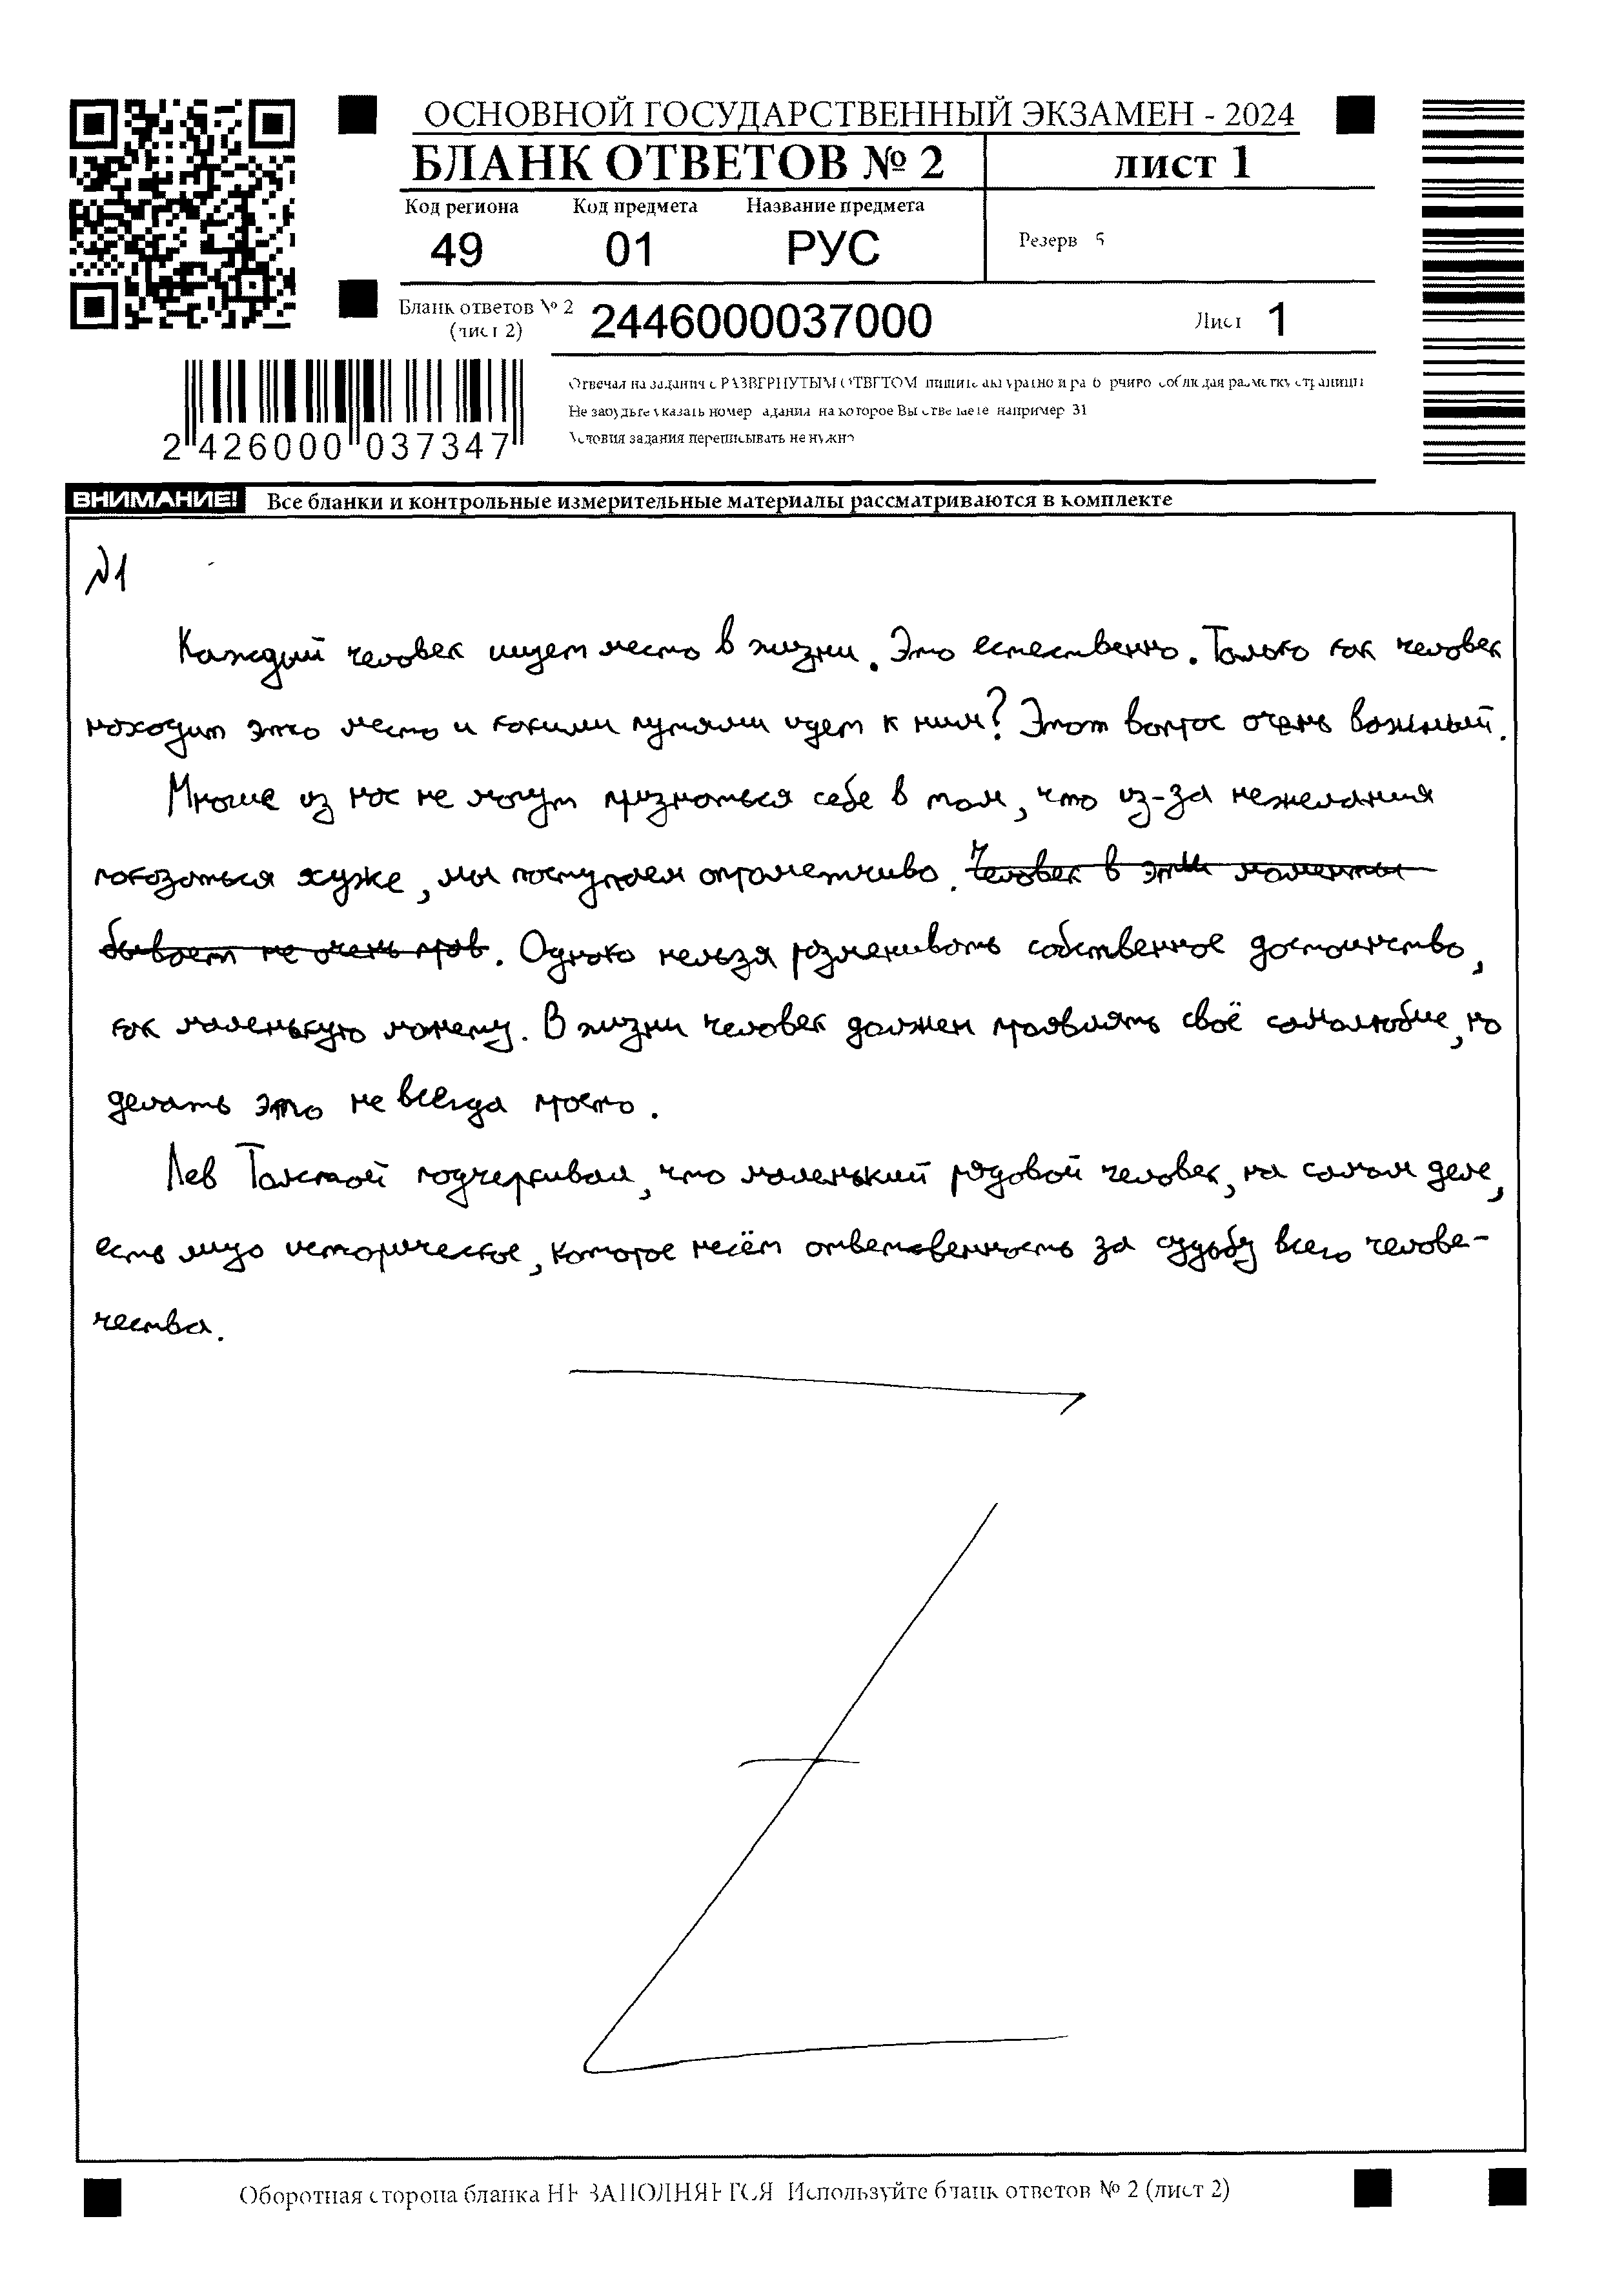 ОСНОВНОЙ ГОСУДАРСТВЕННЫЙ ЭКЗАМЕН - 2024
БЛАНК ОТВЕТОВ № 2 лист 1
Код региона Код предмета Название предмета
49 01 РУС Резерв 5
Бланк ответов № 2 (лист 2) 2446000037000 Лист 1
Отвечая на задания с РАЗВЕРНУТЫМ ОТВЕТОМ пишите аккуратно и разборчиво соблюдая разметку страницы
Не забудьте указать номер задания на которое Вы отвечаете например 31
Условия задания переписывать не нужно
2 426000 037347
ВНИМАНИЕ! Все бланки и контрольные измерительные материалы рассматриваются в комплекте
№1
Каждый человек ищет место в жизни. Это естественно. Только как человек
находит это место и какими путями идет к ним? Этот вопрос очень важный.
Многие из нас не могут признаться себе в том, что из-за нежелания
показаться хуже, мы поступаем опрометчиво. Человек в эти моменты
бывает не очень прав. Однако нельзя разменивать собственное достоинство,
как маленькую монету. В жизни человек должен проявлять своё самолюбие, но
делать это не всегда просто.
Лев Толстой подчеркивал, что маленький рядовой человек, на самом деле,
есть лицо историческое, которое несёт ответственность за судьбу всего челове-
чества.
Оборотная сторона бланка НЕ ЗАПОЛНЯЕТСЯ Используйте бланк ответов № 2 (лист 2)